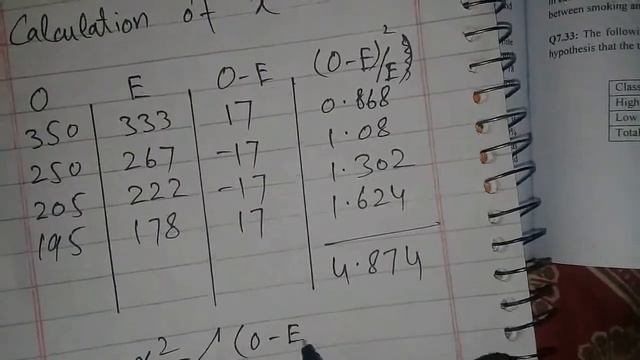 Calculation of χ
O E O-E (O-E)²/E}
350 333 17 0.868
250 267 -17 1.08
205 222 -17 1.302
195 178 17 1.624
4.874
χ² (O-E
between smoking an
Q7.33: The followi
hypothesis that the t
Class
High
Low
Total